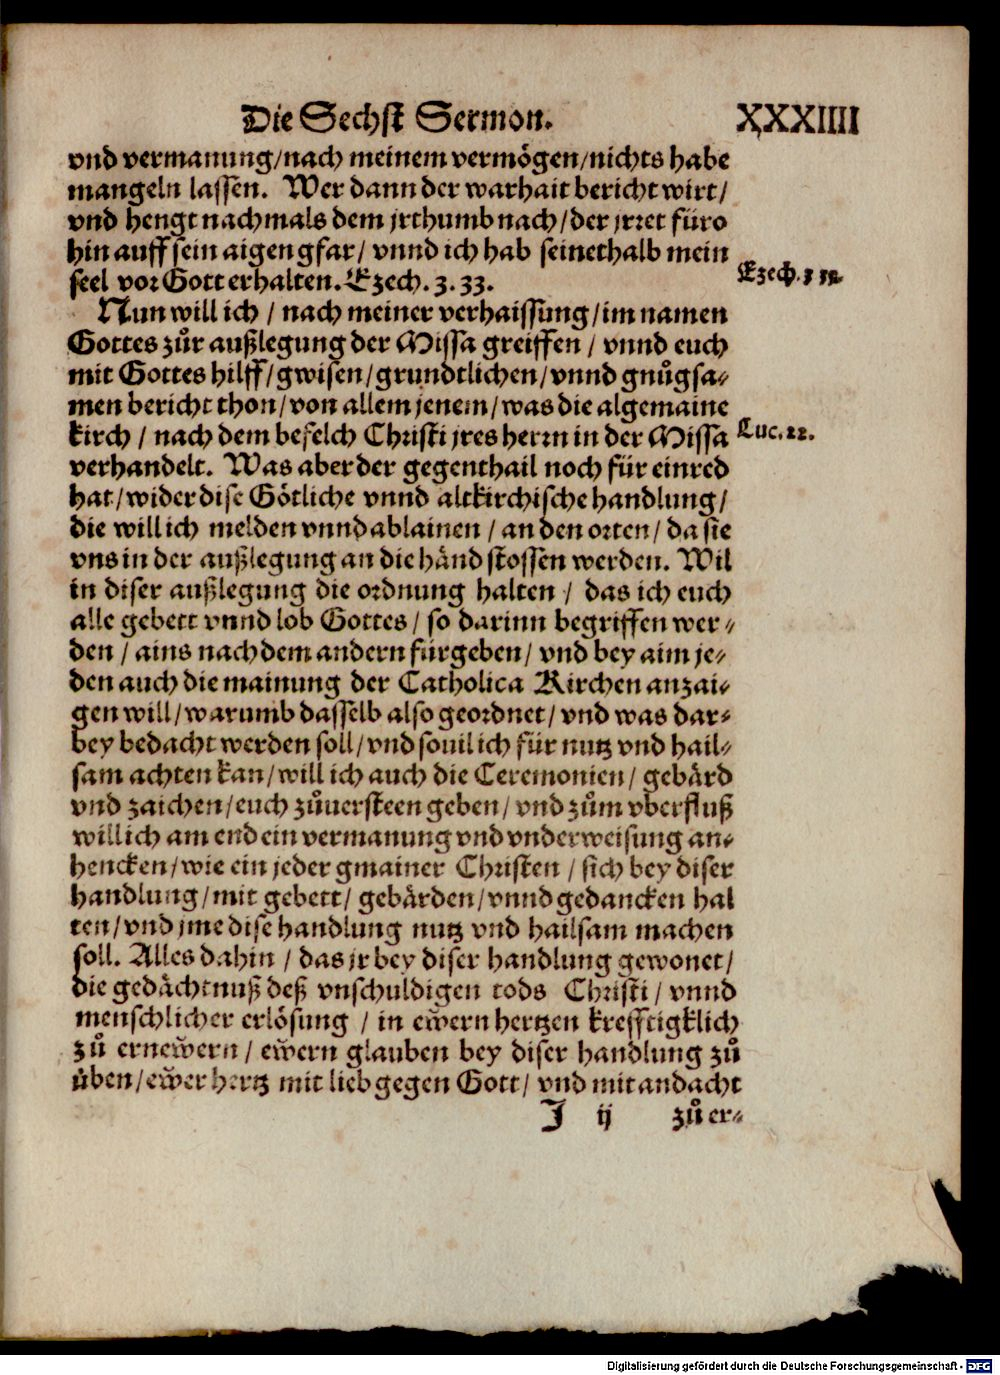 Die Sechst Sermon. XXXIIII
vnd vermanung/nach meinem vermögen/nichts habe
mangeln lassen. Wer dann der warhait bericht wirt/
vnd hengt nachmals dem jrthumb nach/der jrret füro
hin auff sein aigen gfar/ vnnd ich hab seinethalb mein
seel vor Gott erhalten. Ezech. 3. 33.
Ezech.
Nun will ich / nach meiner verhaissung/im namen
Gottes zuͦr außlegung der Missa greiffen / vnnd euch
mit Gottes hilff/gwisen/grundtlichen/vnnd gnuͦgsa-
men bericht thon/von allem jenem/was die algemaine
kirch / nach dem befelch Christi jres herrn in der Missa
Luc. 22.
verhandelt. Was aber der gegenthail noch für einred
hat/wider dise Götliche vnnd altkirchische handlung/
die will ich melden vnnd ablainen / an den orten/ da sie
vns in der außlegung an die händ stossen werden. Wil
in diser außlegung die ordnung halten / das ich euch
alle gebett vnnd lob Gottes/ so darinn begriffen wer-
den / ains nach dem andern fürgeben/ vnd bey aim je-
den auch die mainung der Catholica Kirchen anzai-
gen will/warumb dasselb also geordnet/ vnd was dar-
bey bedacht werden soll/vnd souil ich für nutz vnd hail-
sam achten kan/will ich auch die Ceremonien/ gebärd
vnd zaichen/euch zuͦuersteen geben/ vnd zuͦm vberfluß
will ich am end ein vermanung vnd vnderweisung an-
hencken/wie ein jeder gmainer Christen / sich bey diser
handlung/mit gebett/ gebärden/vnnd gedancken hal
ten/vnd jme dise handlung nutz vnd hailsam machen
soll. Alles dahin / das jr bey diser handlung gewonet/
die gedächtnuß deß vnschuldigen tods Christi/ vnnd
menschlicher erlösung / in eẅern hertzen krefftigklich
zuͦ erneẅern/ eẅern glauben bey diser handlung zuͦ
üben/eẅer hertz mit lieb gegen Gott/ vnd mit andacht
J ij zuͦ er-
Digitalisierung gefördert durch die Deutsche Forschungsgemeinschaft - DFG